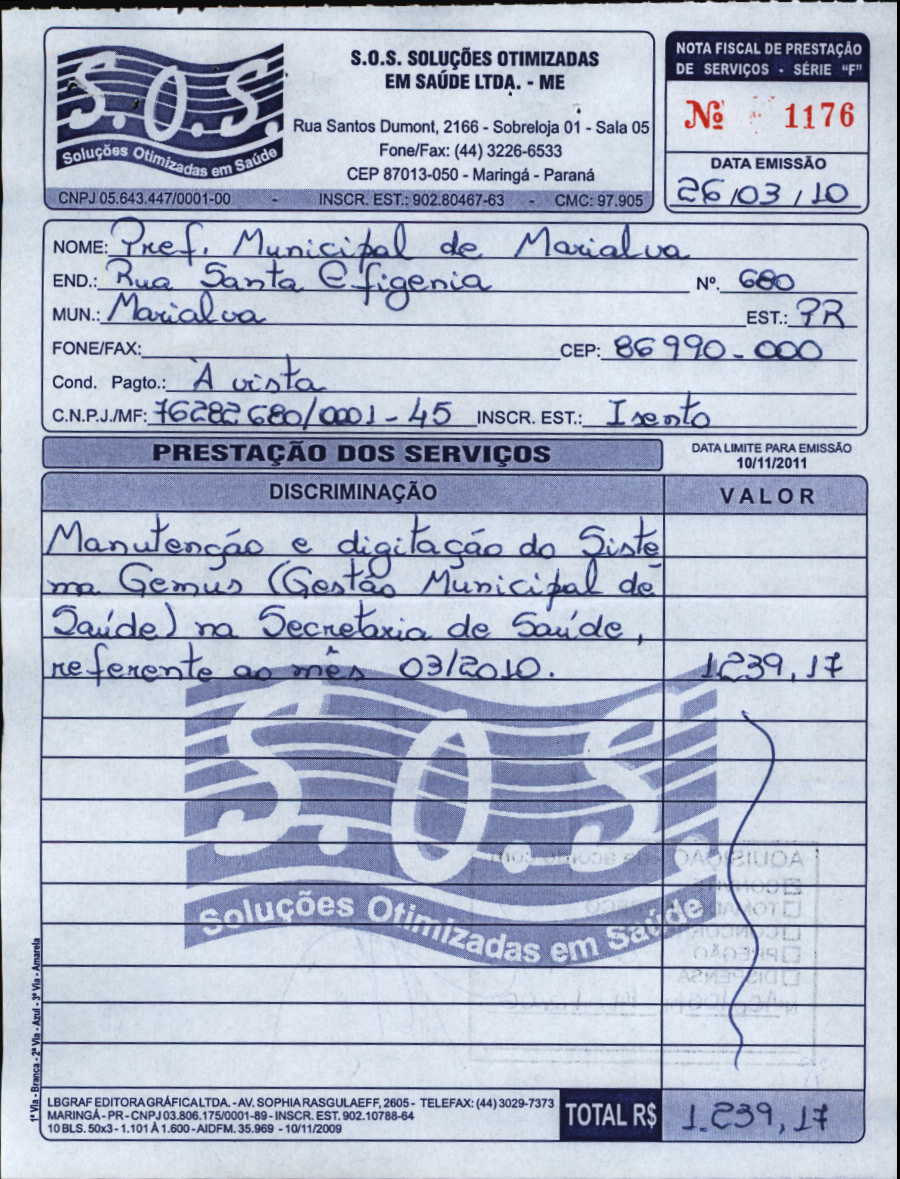 S.O.S.
Soluções Otimizadas em Saúde
S.O.S. SOLUÇÕES OTIMIZADAS
EM SAÚDE LTDA. - ME
Rua Santos Dumont, 2166 - Sobreloja 01 - Sala 05
Fone/Fax: (44) 3226-6533
CEP 87013-050 - Maringá - Paraná
CNPJ 05.643.447/0001-00 - INSCR. EST.: 902.80467-63 - CMC: 97.905
NOTA FISCAL DE PRESTAÇÃO
DE SERVIÇOS - SÉRIE "F"
Nº 1176
DATA EMISSÃO
26/03/10
NOME: Pref. Municipal de Marialva
END.: Rua Santa Efigenia Nº. 680
MUN.: Marialva EST.: PR
FONE/FAX: CEP: 86990-000
Cond. Pagto.: A vista
C.N.P.J./MF: 76282680/0001-45 INSCR. EST.: Isento
PRESTAÇÃO DOS SERVIÇOS
DATA LIMITE PARA EMISSÃO
10/11/2011
DISCRIMINAÇÃO VALOR
Manutenção e digitação do Siste
ma Gemus (Gestão Municipal de
Saúde) na Secretaria de Saúde,
referente ao mês 03/2010. 1.239,17
S.O.S.
Soluções Otimizadas em Saúde
AQUISIÇÃO de acordo com
PREGÃO
DISPENSA
1ª Via - Branca - 2ª Via - Azul - 3ª Via - Amarela
LBGRAF EDITORA GRÁFICA LTDA. - AV. SOPHIA RASGULAEFF, 2605 - TELEFAX: (44) 3029-7373
MARINGÁ - PR - CNPJ 03.806.175/0001-89 - INSCR. EST. 902.10788-64
10 BLS. 50x3 - 1.101 À 1.600 - AIDFM. 35.969 - 10/11/2009
TOTAL R$ 1.239,17